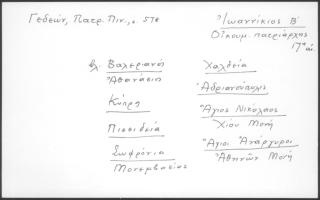 Γεδεών, Πατρ. Πιν., σ. 578
Ἰωαννίκιος Β΄
Οἰκουμ. πατριάρχης
17ος αἰ.
βλ. Βαλεριανός
Ἀθανάσιος
Κύπρη
Πισειδεία
Σωφρόνιος
Μονεμβασίας
Χαλδεία
Ἀδριανούπολις
Ἅγιος Νικόλαος
Χίου Μονή
Ἅγιοι Ἀνάργυροι
Ἀθηνῶν Μονή